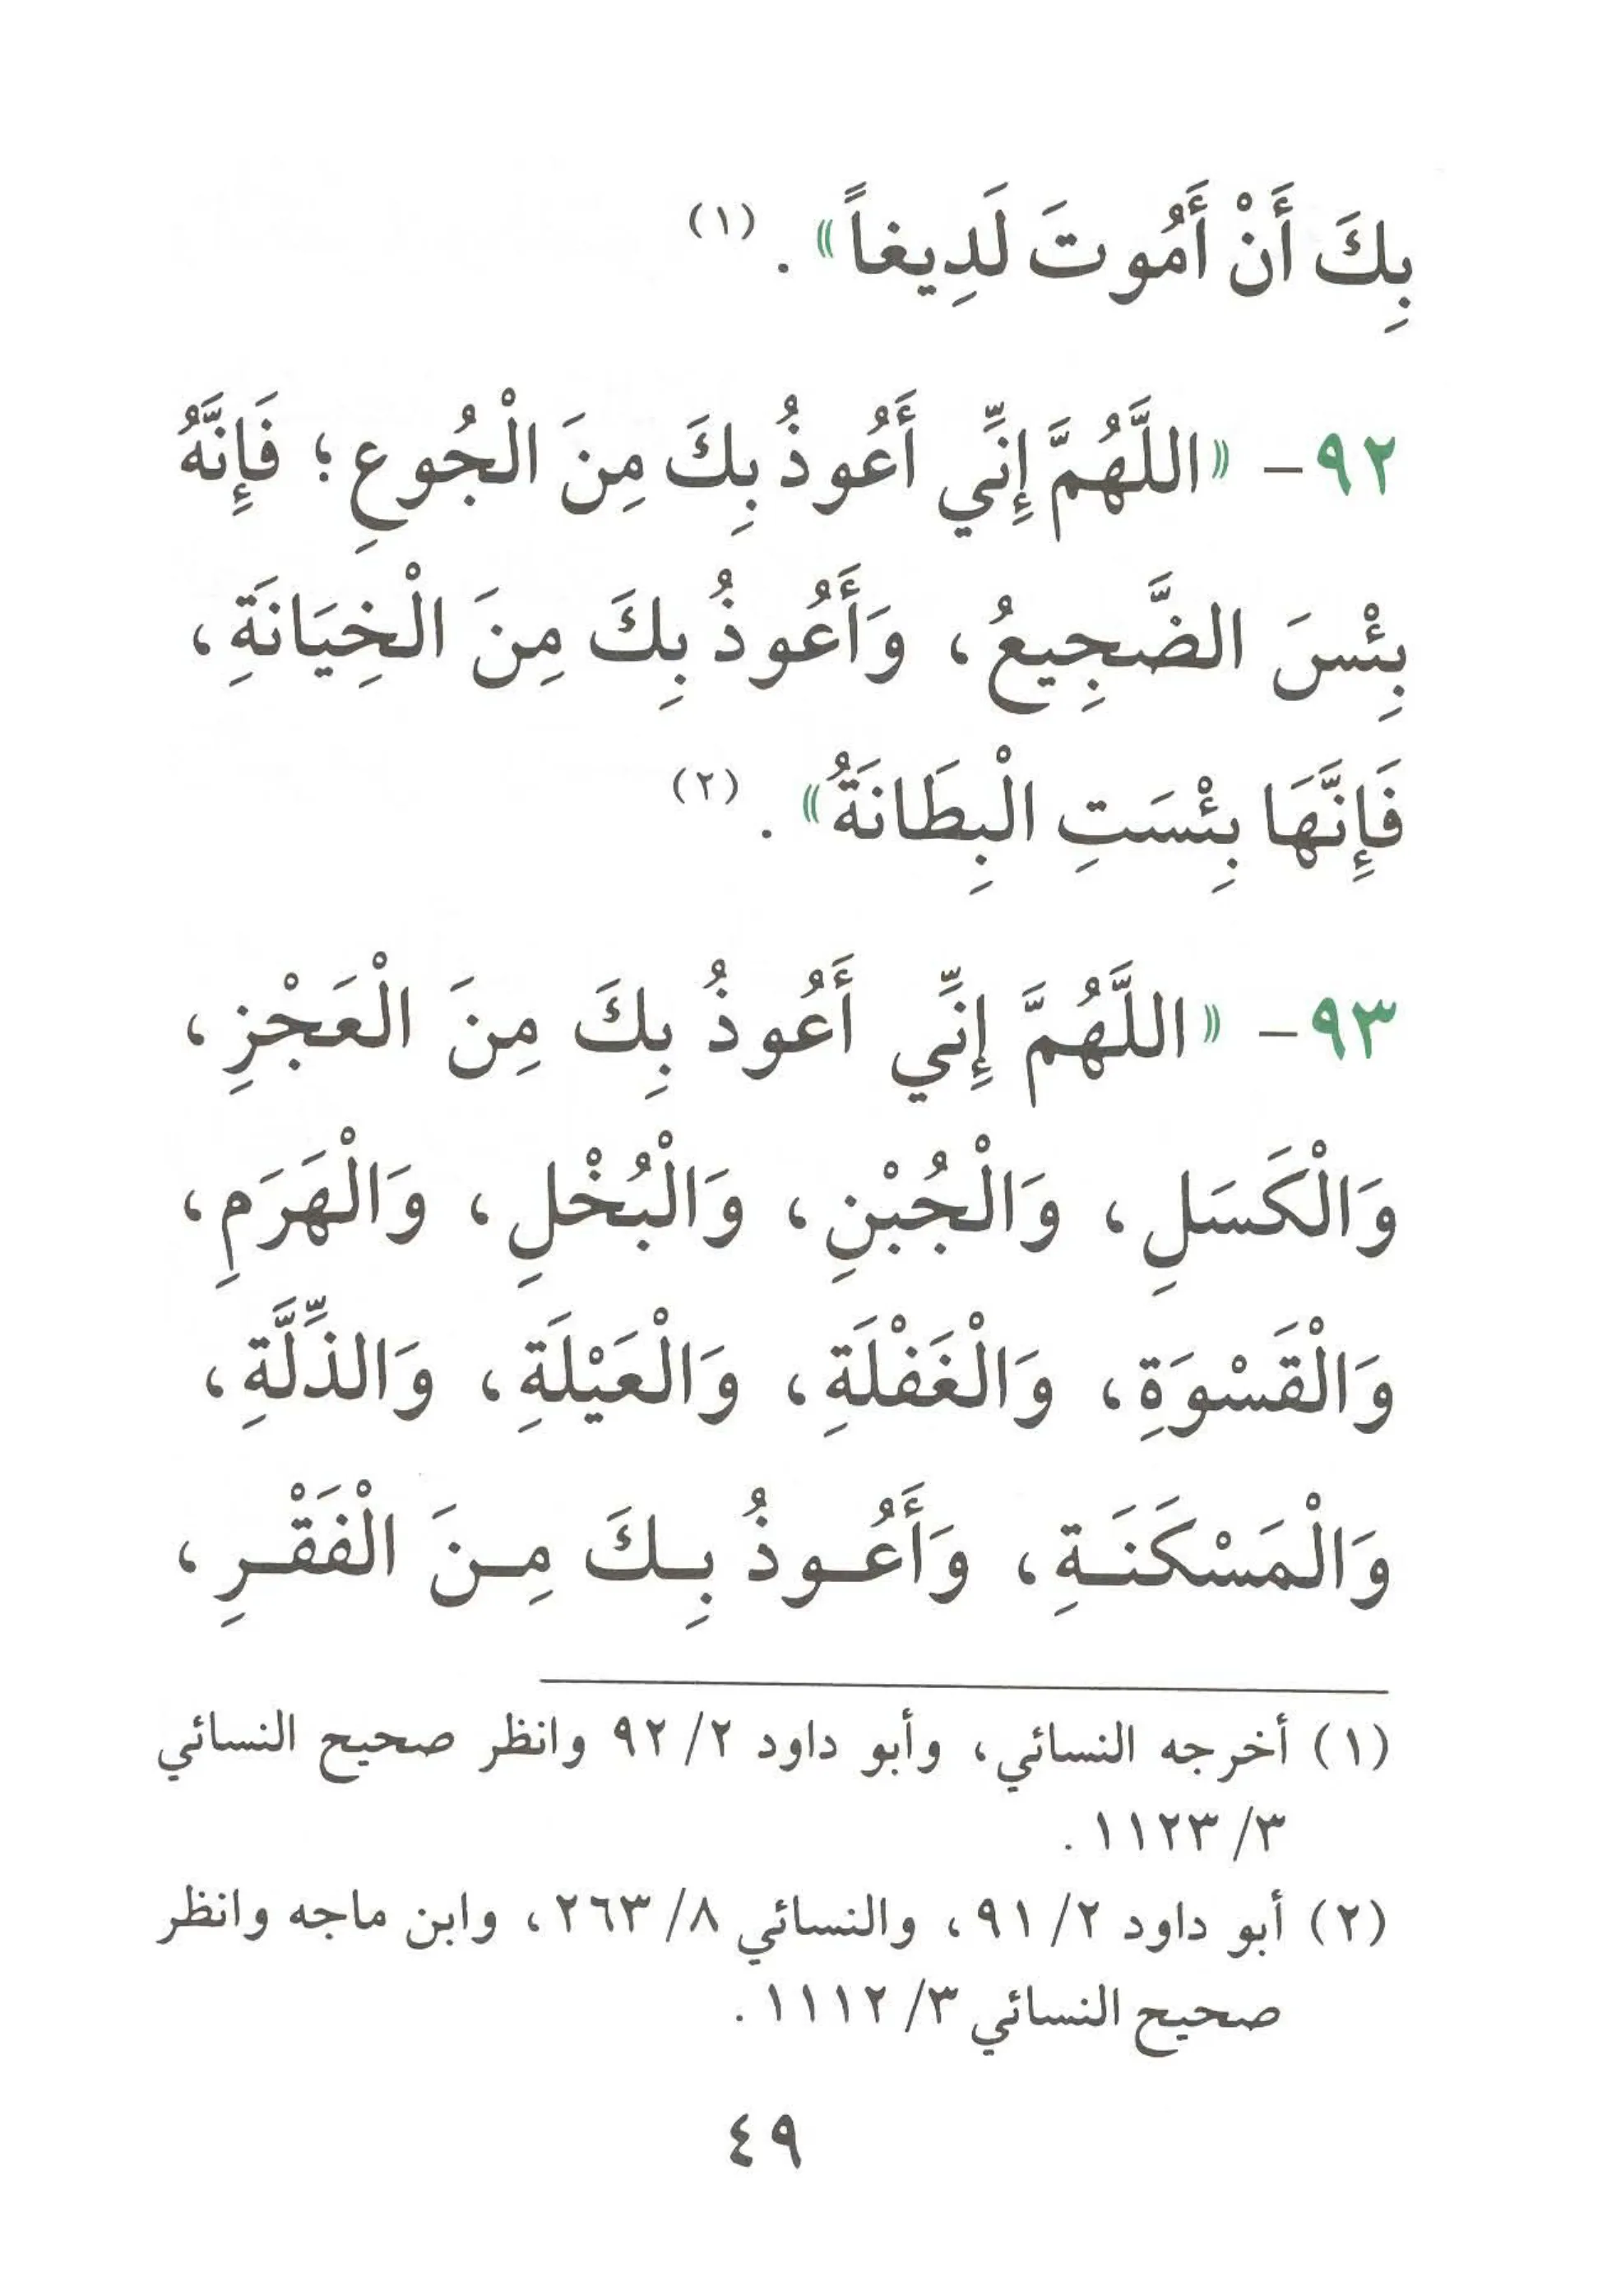 بِكَ أَنْ أَمُوتَ لَدِيغاً» . (١)
٩٢ - «اللَّهُمَّ إِنِّي أَعُوذُ بِكَ مِنَ الْجُوعِ؛ فَإِنَّهُ
بِئْسَ الضَّجِيعُ، وَأَعُوذُ بِكَ مِنَ الْخِيَانَةِ،
فَإِنَّهَا بِئْسَتِ الْبِطَانَةُ» . (٢)
٩٣ - «اللَّهُمَّ إِنِّي أَعُوذُ بِكَ مِنَ الْعَجْزِ،
وَالْكَسَلِ، وَالْجُبْنِ، وَالْبُخْلِ، وَالْهَرَمِ،
وَالْقَسْوَةِ، وَالْغَفْلَةِ، وَالْعَيْلَةِ، وَالذِّلَّةِ،
وَالْمَسْكَنَـةِ، وَأَعُـوذُ بِـكَ مِـنَ الْفَقْـرِ،
(١) أخرجه النسائي، وأبو داود ٢/ ٩٢ وانظر صحيح النسائي
٣/ ١١٢٣ .
(٢) أبو داود ٢/ ٩١، والنسائي ٨/ ٢٦٣، وابن ماجه وانظر
صحيح النسائي ٣/ ١١١٢ .
٤٩